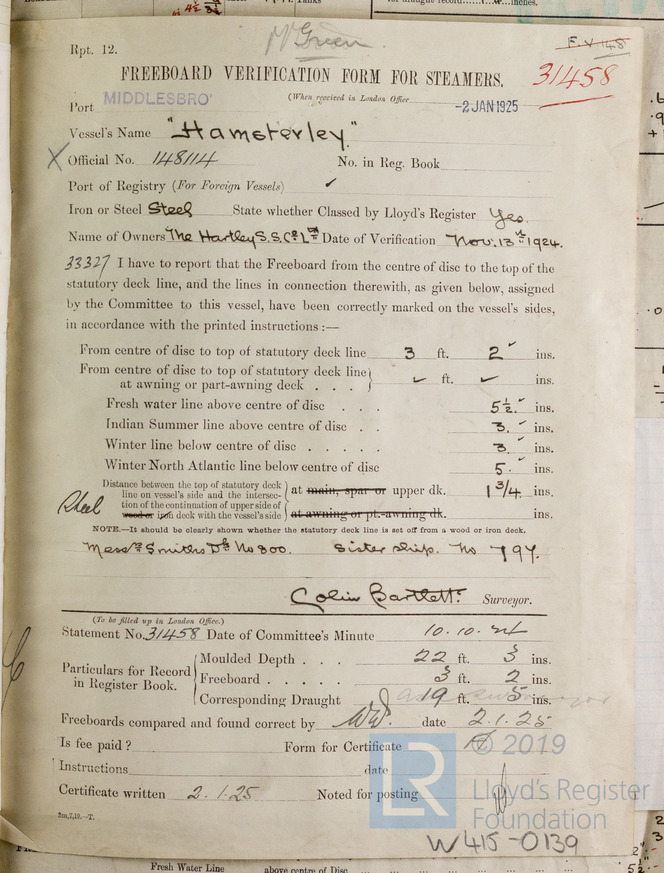 4½ 3½ Tanks
for draught record ins. inches.
Mr Green
Rpt. 12.
F.V. 148
FREEBOARD VERIFICATION FORM FOR STEAMERS.
31458
(When received in London Office
-2 JAN 1925
Port MIDDLESBRO'
Vessel's Name "Hamsterley"
X Official No. 148114 No. in Reg. Book
Port of Registry (For Foreign Vessels) ✓
Iron or Steel Steel State whether Classed by Lloyd's Register Yes.
Name of Owners The Hartley S.S. Co Ltd Date of Verification Nov. 13th 1924.
33327 I have to report that the Freeboard from the centre of disc to the top of the
statutory deck line, and the lines in connection therewith, as given below, assigned
by the Committee to this vessel, have been correctly marked on the vessel's sides,
in accordance with the printed instructions :—
From centre of disc to top of statutory deck line 3 ft. 2 ✓ ins.
From centre of disc to top of statutory deck line
at awning or part-awning deck . . . ✓ ft. ✓ ins.
Fresh water line above centre of disc . . . 5½. ✓ ins.
Indian Summer line above centre of disc . . 3. ✓ ins.
Winter line below centre of disc . . . . . 3. ✓ ins.
Winter North Atlantic line below centre of disc 5. ✓ ins.
Distance between the top of statutory deck
line on vessel's side and the intersec-
tion of the continuation of upper side of
Steel wood or iron deck with the vessel's side
at main, spar or upper dk. 1 3/4 ins.
at awning or pt.-awning dk. ins.
NOTE.—It should be clearly shown whether the statutory deck line is set off from a wood or iron deck.
Messrs Smiths Dk No 800. Sister ship. No 797.
Colin Bartlett. Surveyor.
(To be filled up in London Office.)
Statement No. 31458 Date of Committee's Minute 10.10.24
Particulars for Record
in Register Book.
Moulded Depth . . . 22 ft. 3 ins.
Freeboard . . . . . 3 ft. 2 ins.
Corresponding Draught 19 ft. 5 ins.
Freeboards compared and found correct by WW. date 2.1.25
Is fee paid ? Form for Certificate
Instructions date
Certificate written 2.1.25 Noted for posting
2m,7,19.—T.
LR
© 2019
Lloyd's Register
Foundation
W415-0139
Fresh Water Line above centre of Disc